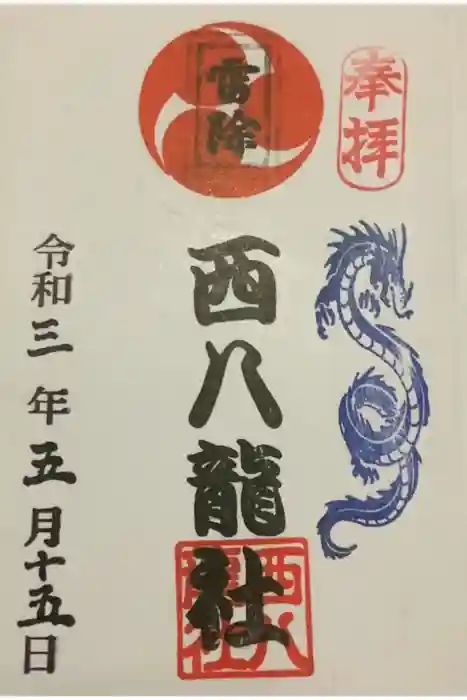 奉拝
雷除
西八龍社
西八龍社
令和三年五月十五日